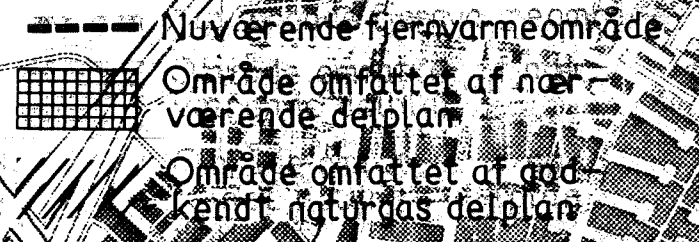 Nuværende fjernvarmeområde
Område omfattet af nær-
værende delplan
Område omfattet af god-
kendt naturgas delplan